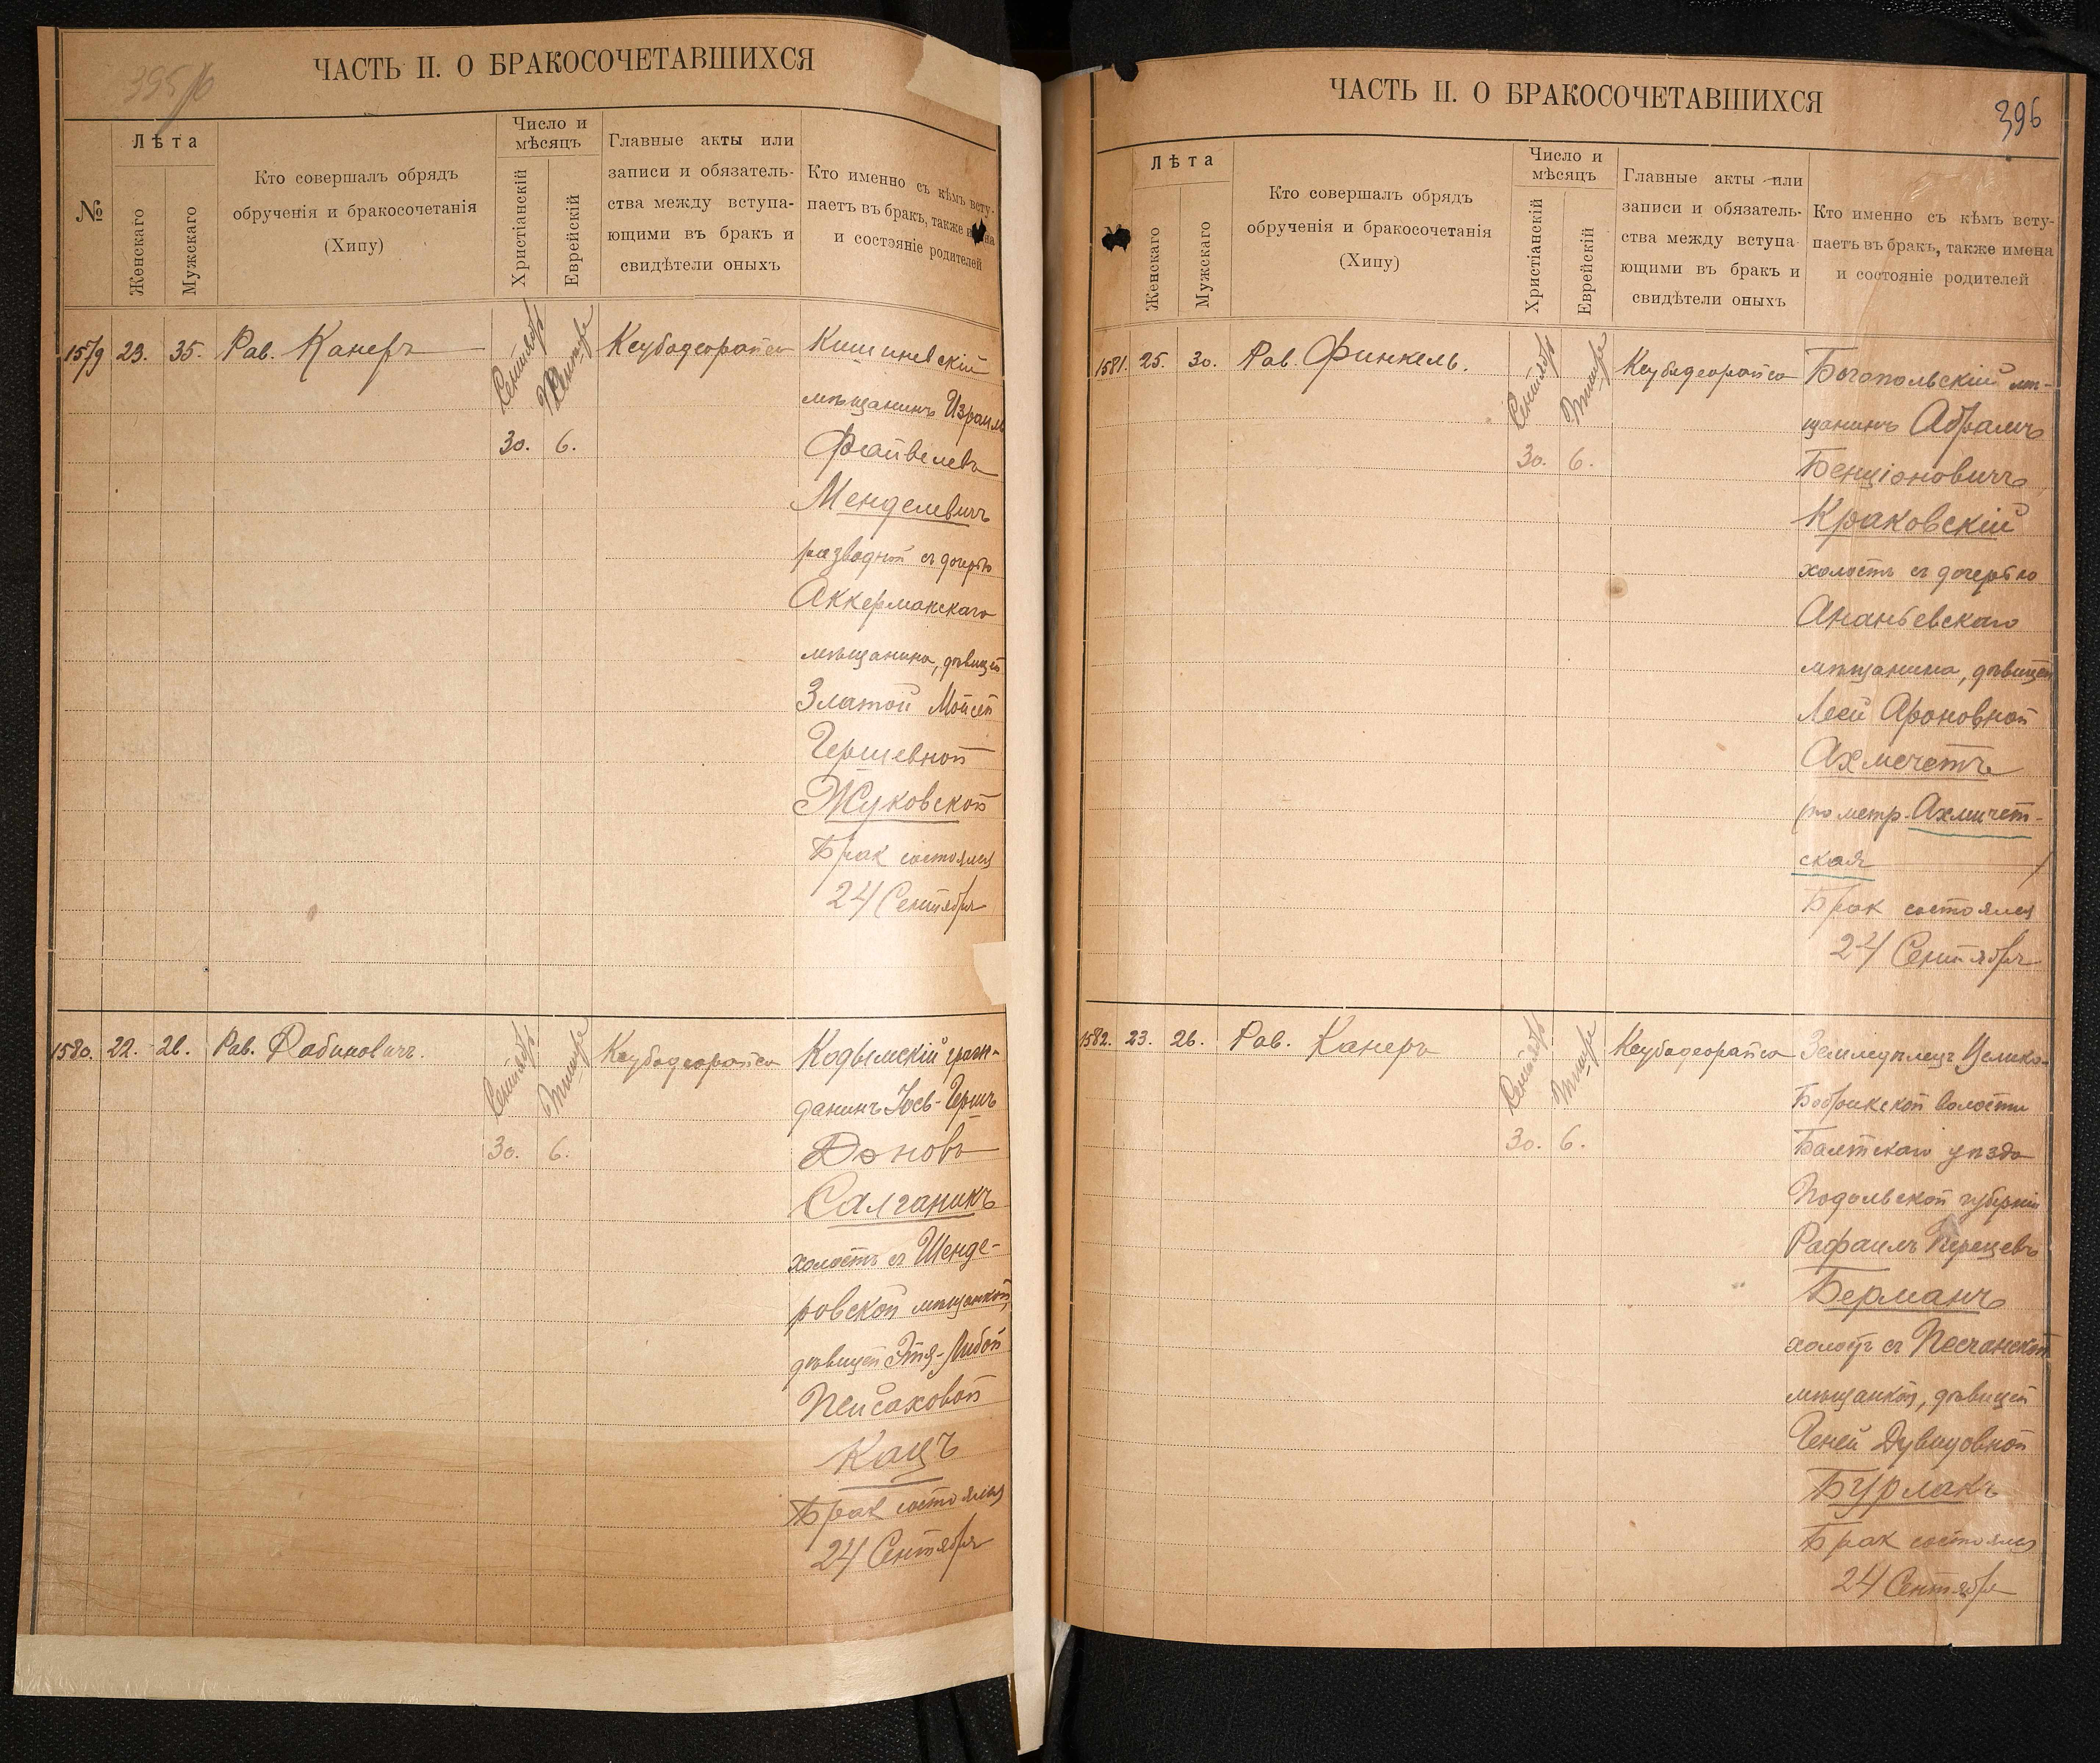 ЧАСТЬ II. О БРАКОСОЧЕТАВШИХСЯ
№
Лѣта
Женскаго
Мужскаго
Кто совершалъ обрядъ
обрученія и бракосочетанія
(Хипу)
Число и
мѣсяцъ
Христіанскій
Еврейскій
Главные акты или
записи и обязатель-
ства между вступа-
ющими въ бракъ и
свидѣтели оныхъ
Кто именно съ кѣмъ всту-
паетъ въ бракъ, также
и состояніе родителей
1579 23. 35. Рав. Канеръ
Сентябрь
30. 6.
Кишиневскій
мѣщанинъ Израиль
Файвелевъ
Менделевичъ
разводной съ дочерью
Аккерманскаго
мѣщанина, дѣвицей
Златой Мойсей
Гершевной
Жуковской
Брак состоялся
24 Сентября
1580. 22. 26. Рав. Рабиновичъ.
Сентябрь Тишре
30. 6.
Кодымскій граж-
данинъ Іось-Гершъ
Доновъ
Салганикъ
холостъ съ Шенде-
ровской мѣщанкой,
дѣвицей Этя-Либой
Пейсаховой
Кацъ
Брак состоялся
24 Сентября
ЧАСТЬ II. О БРАКОСОЧЕТАВШИХСЯ
396
Лѣта
Женскаго
Мужскаго
Кто совершалъ обрядъ
обрученія и бракосочетанія
(Хипу)
Число и
мѣсяцъ
Христіанскій
Еврейскій
Главные акты или
записи и обязатель-
ства между вступа
ющими въ бракъ и
свидѣтели оныхъ
Кто именно съ кѣмъ всту-
паетъ въ бракъ, также имена
и состояніе родителей
1581. 25. 30. Рав. Финкель.
Сентябрь Тишре
30. 6.
Богопольскій мѣ-
щанинъ Абрамъ
Бенціоновичъ
Краковскій
холостъ съ дочерью
Ананьевскаго
мѣщанина, дѣвицей
Леей Ароновной
Ахмечетъ
(по метр. Ахмичет-
ская )
Брак состоялся
24 Сентября
1582. 23. 26. Рав. Канеръ
Сентябрь Тишре
30. 6.
Землядѣлецъ
Бобрикской волости
Балтскаго уѣзда
Подольской губерніи
Рафаилъ Перецевъ
Берманъ
холостъ съ Песчанской
мѣщанкой, дѣвицей
Геней Дувидовной
Бурлакъ
Брак состоялся
24 Сентября